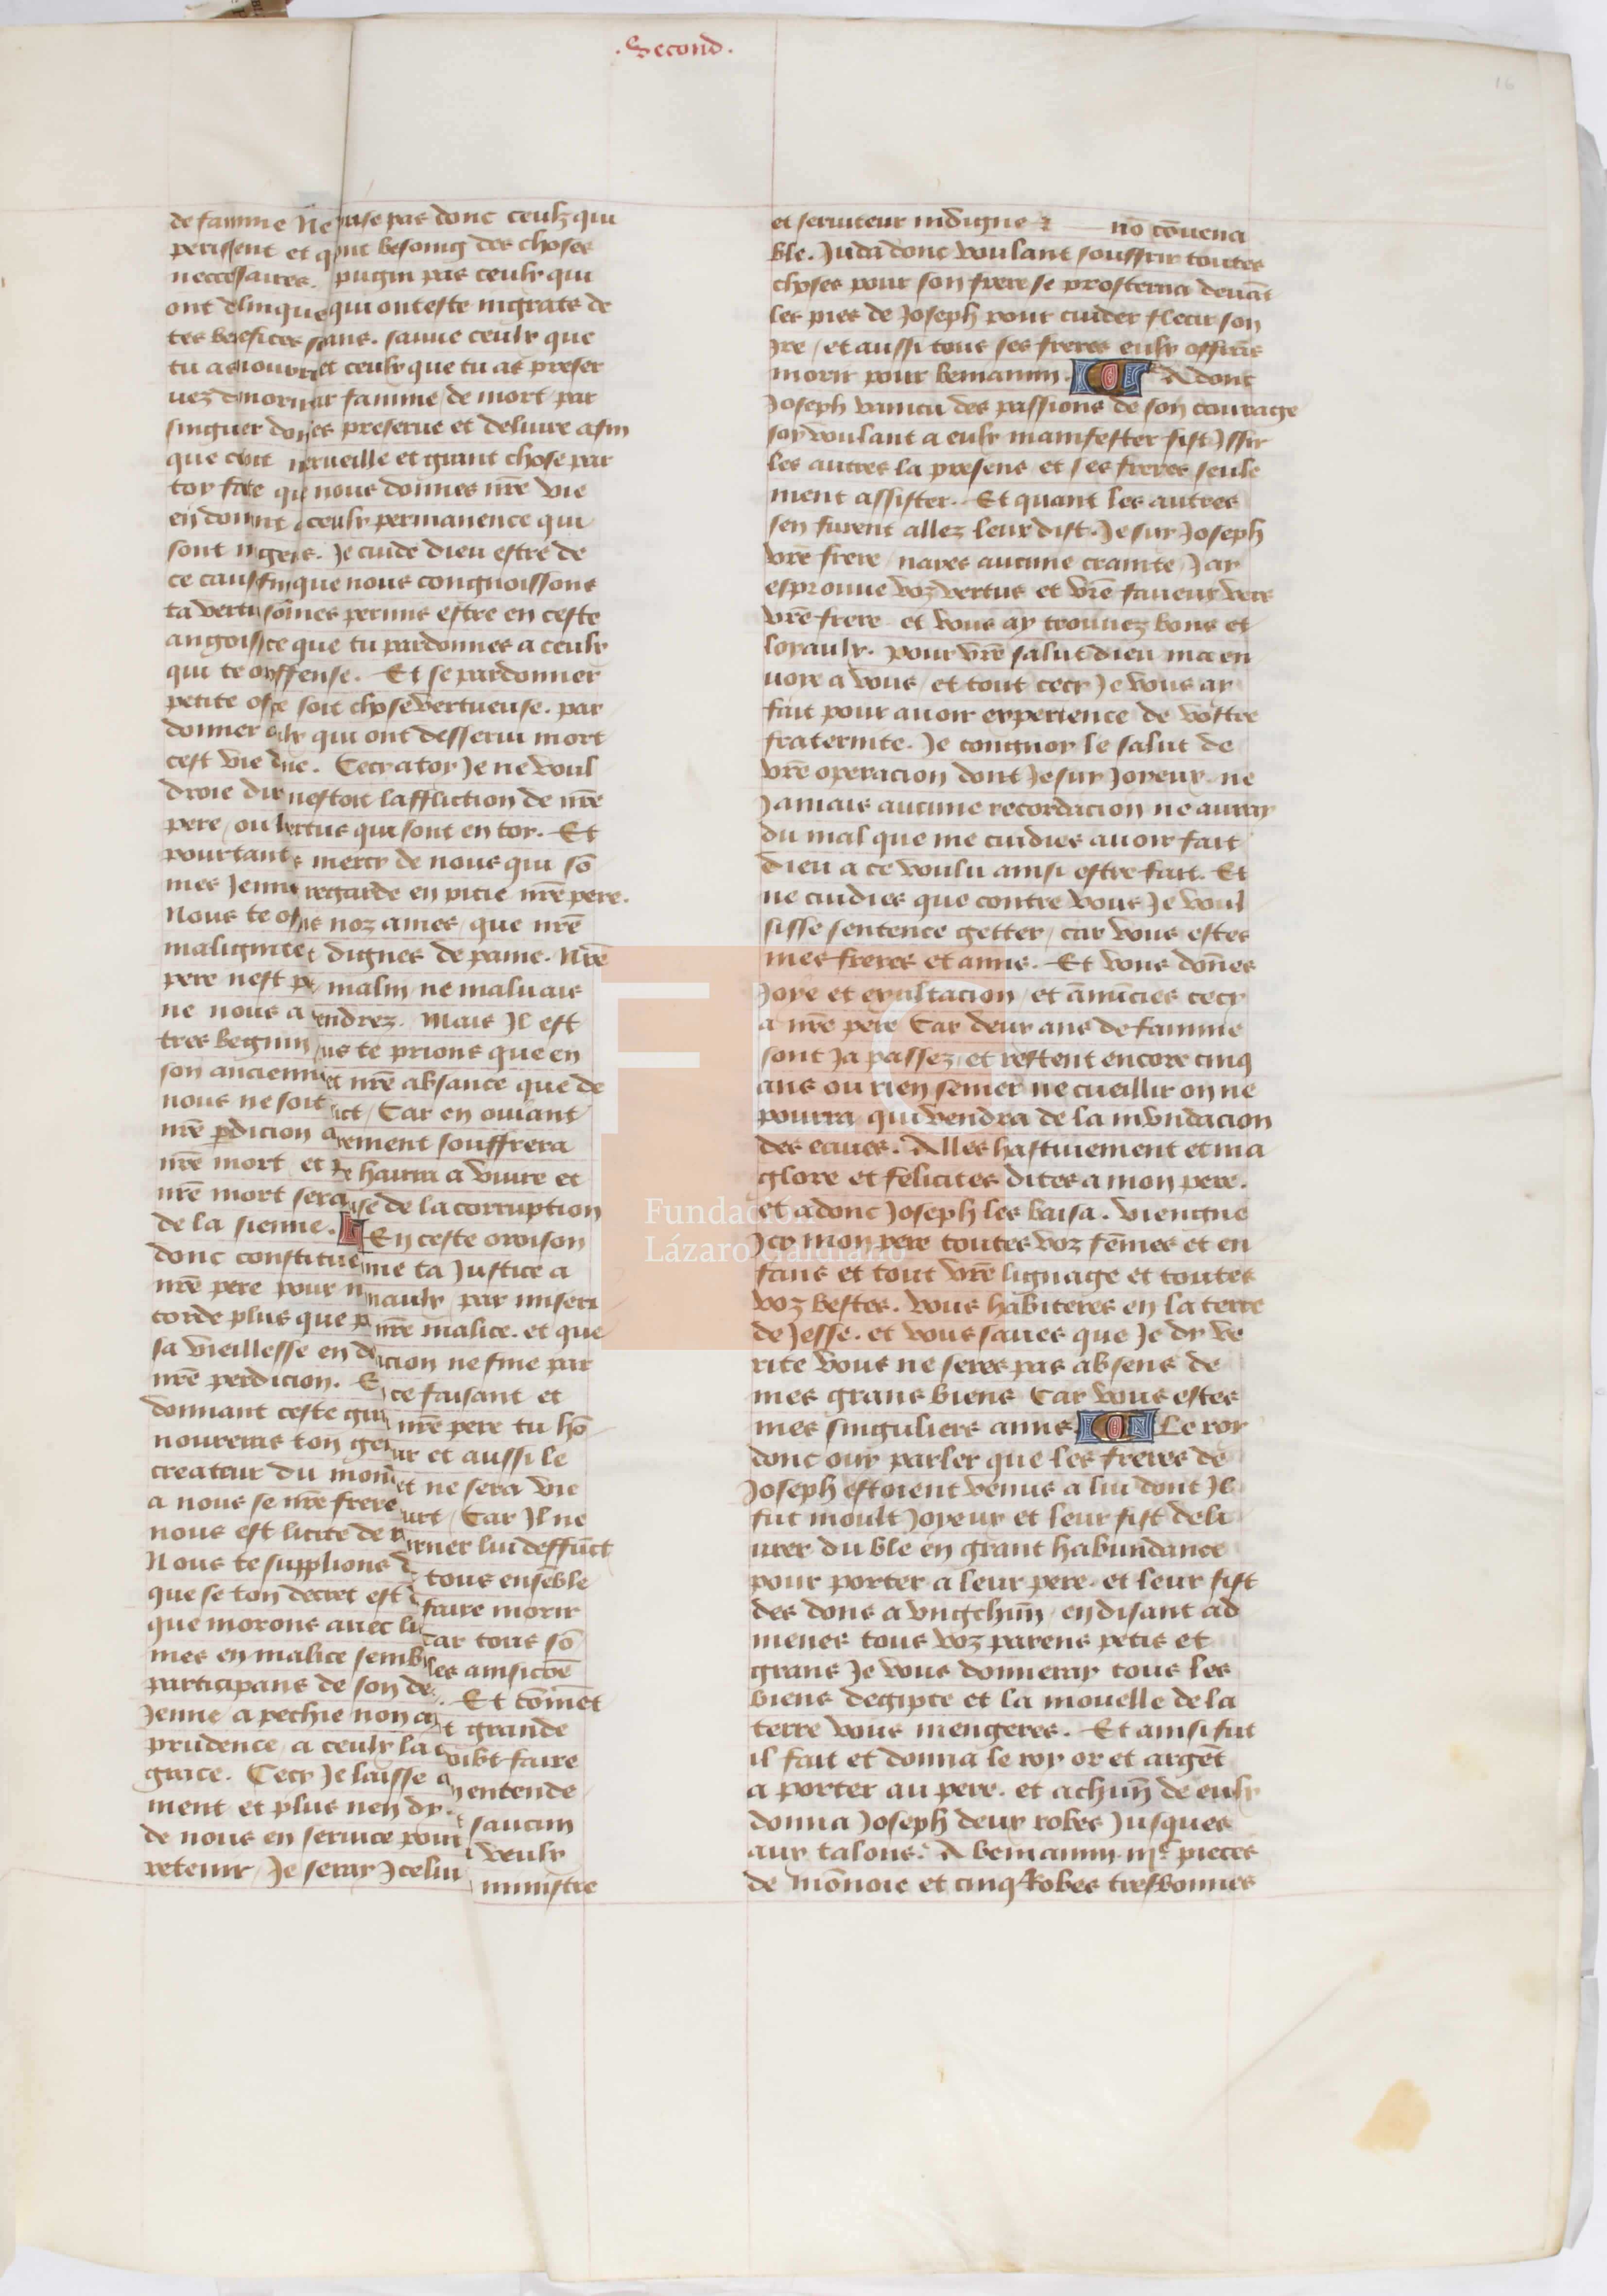 .Second.
16
de famine Ne ise pas donc ceulz qui
perissent et q ont besoing des choses
neccessaires. pugni pas ceulx qui
ont delinque qui ont este ingrats de
tes benefices sans. sauue ceulx que
tu as nourri et ceulx que tu as preser
uez de morir par famine / de mort par
singuler dones preserue et deliure afin
que ce soit merueille et grant chose par
toy faite que nous donnes nr̄e vie
en donnant a ceulx permanence qui
sont Je cuide dieu estre de
ce caus que nous congnoissons
ta vertu sōmes permis estre en ceste
angoisse ce que tu pardonnes a ceulx
qui te offense. Et se pardonner
petite offense soit chose vertueuse. par
donner ceulx qui ont desserui mort
cest vie Cecy a toy Je ne voul
droie dire nestoit laffliction de nr̄e
pere / ou vertus qui sont en toy. Et
pourtant mercy de nous qui sō
mes Jenne regarde en pitie nr̄e pere.
Nous te noz ames / que nr̄e
malignite dignes de paine. Nr̄e
pere nest pas malin / ne maluais
ne nous a endrez. Mais Il est
tres begnin us te prions que en
son ancienn et nr̄e absance que de
nous ne soit Car en ouiant
nr̄e ꝑdicion a rement souffrera
nr̄e mort et haura a viure et
nr̄e mort sera use de la corruption
de la sienne. En ceste oroison
donc constitue me ta Justice a
nr̄e pere pour n maulx / par miseri
corde plus que p nr̄e malice. et que
sa vieillesse en de acion ne fine par
nr̄e perdicion. E ce faisant et
donnant ceste gra nr̄e pere tu hō
noureras ton gen ur et aussi le
createur du mon et ne sera vie
a nous se nr̄e frere urt / Car Il ne
nous est licite de r urner lui deffūct
Nous te supplions tous ensēble
que se ton decret est faire morir
que morons auec lu Car tous sō
mes en malice sembl les ainsi cōe
participans de son de Et cōmēt
Jenne / a pechie non a t grande
prudence / a ceulx la doibt faire
grace. Cecy Je laisse a n entende
ment et plus nen dy. saucun
de nous en seruice pour veulx
retenir / Je seray Icelui ministre
et seruiteur indigne et nō cōuena
ble. Juda donc voulant souffrir toutes
choses pour son frere se prosterna deuāt
les pies de Joseph pour cuider flecir son
Ire / et aussi tous ses freres eulx offrās
morir pour beniamin. Adonc
Joseph vaincu des passions de son courage
soy voulant a eulx manifester fist Issir
les autres la presens et ses freres seule
ment assister. Et quant les autres
sen furent allez leur dist. Je suy Joseph
vr̄e frere / nayes aucune crainte / Jay
esprouue voz vertus et vr̄e faueur vers
vr̄e frere et vous ay trouuez bons et
loyaulx. pour vr̄e salut dieu ma en
uoye a vous / et tout cecy Je vous ay
fait pour auoir experience de vostre
fraternite. Je congnoy le salut de
vr̄e operacion dont Je suy Joyeux. ne
Jamais aucune recordacion ne auray
du mal que me cuidies auoir fait
dieu a ce voulu ainsi estre fait. Et
ne cuidies que contre vous Je voul
sisse sentence getter / car vous estes
mes freres et amis. Et vous dōnes
Joye et exultacion / et ānūcies cecy
a nr̄e pere Car deux ans de famine
sont Ja passez / et restent encore cinq
ans ou rien semer ne cueillir on ne
pourra qui vendra de la inundacion
des eaues. Alles hastiuement et ma
glore et felicites dites a mon pere.
et adonc Joseph les baisa. viengne
Icy mon pere toutes voz fēmes et en
fans et tout vr̄e lignage et toutes
voz bestes. vous habiteres en la terre
de Jesse. et vous saues que Je dy ve
rite vous ne seres pas absens de
mes grans biens Car vous estes
mes singuliers amis. Le roy
donc ouy parler que les freres de
Joseph estoient venus a lui dont Il
fut moult Joyeux et leur fist deli
urer du ble en grant habundance
pour porter a leur pere. et leur fist
des dons a vngchūn / en disant ad
menes tous voz parens petis et
grans Je vous donneray tous les
biens degipte et la mouelle de la
terre vous mengeres. Et ainsi fut
il fait et donna le roy or et argēt
a porter au pere. et a chūn de eulx
donna Joseph deux robes Jusques
aux talons. A beniamin iijᶜ pieces
de mōnoie et cinq Robes tresbonnes
Fundación
Lázaro Galdiano